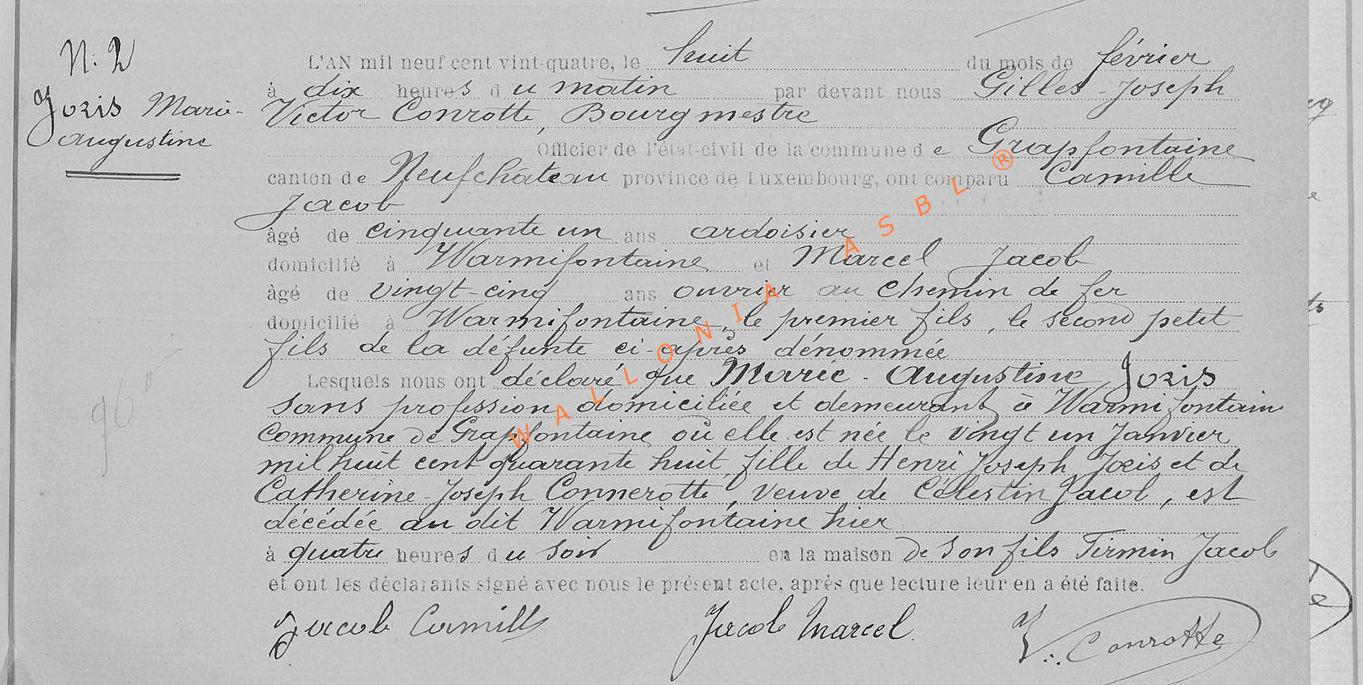 N: 2
Joris Marie-
Augustine
L'AN mil neuf cent vint-quatre, le huit du mois de février
à dix heures du matin par devant nous Gilles-Joseph
Victor Conrotte, Bourgmestre
Officier de l'état-civil de la commune de Grapfontaine
canton de Neufchateau province de Luxembourg, ont comparu Camille
Jacob
âgé de cinquante un ans ardoisier
domicilié à Warmifontaine et Marcel Jacob
âgé de vingt-cinq ans ouvrier au chemin de fer
domicilié à Warmifontaine, le premier fils, le second petit
fils de la défunte ci-après dénommée
Lesquels nous ont déclaré que Marie-Augustine Joris
sans profession domiciliée et demeurant à Warmifontain
commune de Grapfontaine où elle est née le vingt un Janvier
mil huit cent quarante huit, fille de Henri Joseph Joris et de
Catherine-Joseph Connerotte, veuve de Célestin Jacob, est
décédée au dit Warmifontaine hier
à quatre heures du soir en la maison de son fils Firmin Jacob
et ont les déclarants signé avec nous le présent acte, après que lecture leur en a été faite.
Jacob Camille Jacob Marcel. V. Conrotte
WALLONIA ASBL ®